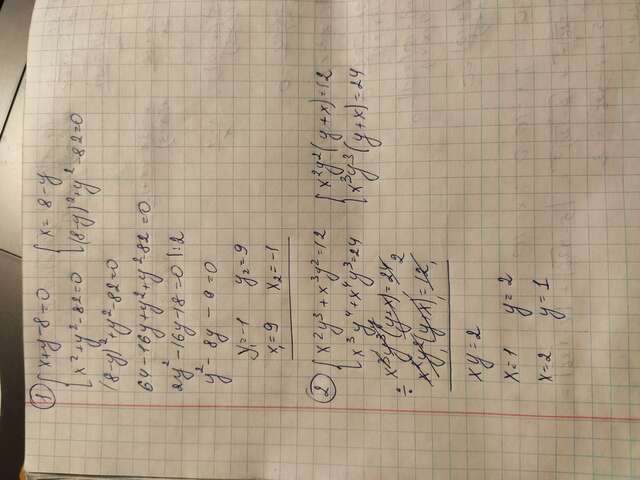 1) { x+y-8=0 { x=8-y
{ x²+y²-82=0 { (8-y)²+y²-82=0
(8-y)²+y²-82=0
64-16y+y²+y²-82=0
2y²-16y-18=0 |:2
y²-8y-9=0
y₁=-1 y₂=9
x₁=9 x₂=-1
2) { x²y³+x³y²=12 { x²y²(y+x)=12
{ x³y⁴+x⁴y³=24 { x³y³(y+x)=24
÷ x³y³(y+x)=24 2
x²y²(y+x)=12 1
xy=2
x=1 y=2
x=2 y=1